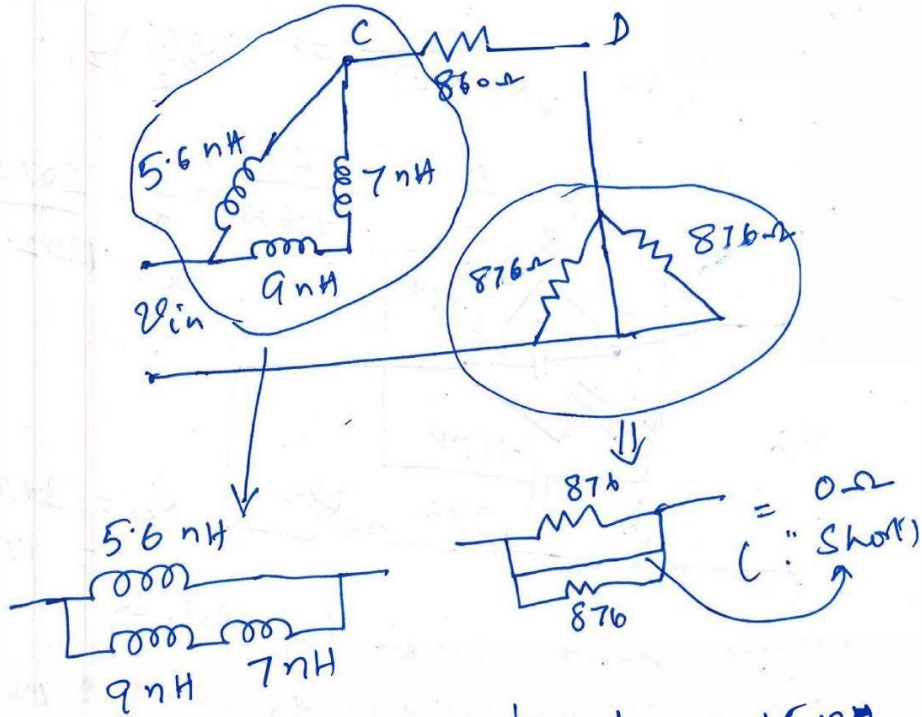 C
D
860Ω
5.6 nH
7 nH
9 nH
Vin
876Ω
876Ω
5.6 nH
9 nH 7 nH
876
876
= 0Ω
(∵ Short)